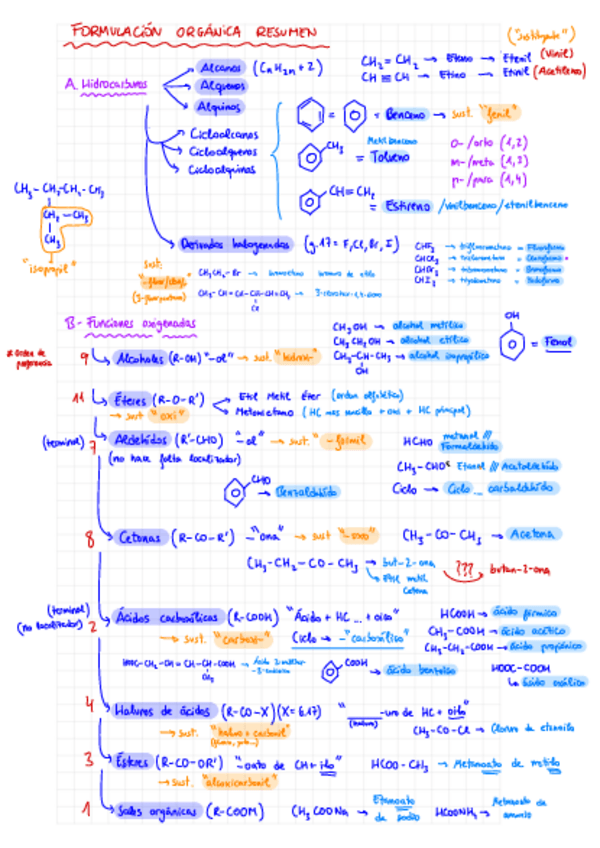 FORMULACIÓN ORGÁNICA RESUMEN
("Sustituyente")
A. Hidrocarburos
Alcanos (CnH2n+2)
Alquenos
Alquinos
CH2=CH2 → Eteno → Etenil (Vinil)
CH≡CH → Etino → Etinil (Acetileno)
Cicloalcanos
Cicloalquenos
Cicloalquinos
= Benceno → sust. "fenil"
CH3 Metilbenceno
= Tolueno
o-/orto (1,2)
m-/meta (1,3)
p-/para (1,4)
CH=CH2
= Estireno /vinilbenceno/etenilbenceno
CH3-CH2-CH2-CH3
CH2-CH3
CH3
"isopropil"
Derivados halogenados (g.17= F, Cl, Br, I)
sust:
CH3CH2-Br → bromoetano bromuro de etilo
CHF3 → trifluorometano = Fluoroformo
CHCl3 → triclorometano = Cloroformo
CHBr3 → tribromometano = Bromoformo
CHI3 → triyodometano = Yodoformo
B- Funciones oxigenadas
* Orden de preferencia
9 Alcoholes (R-OH) "-ol" → sust. "hidroxi-"
CH3OH → alcohol metílico
CH3CH2OH → alcohol etílico
CH3-CH-CH3 → alcohol isopropílico
OH
OH
= Fenol
11 Éteres (R-O-R')
→ sust "oxi"
Etil Metil éter (orden alfabético)
Metoxietano (HC más sencillo + oxi + HC principal)
(terminal) 7 Aldehídos (R'-CHO) "-al" → sust. "-formil"
(no hace falta localizador)
HCHO metanal // Formaldehído
CH3-CHO Etanal // Acetaldehído
CHO → Benzaldehído
Ciclo → Ciclo... carbaldehído
8 Cetonas (R-CO-R') -"ona" → sust "-oxo"
CH3-CO-CH3 → Acetona
CH3-CH2-CO-CH3 → but-2-ona ??? butan-2-ona
Etil metil cetona
(terminal)
(no localizador)
2 Ácidos carboxílicos (R-COOH) "Ácido + HC ... + oico"
→ sust. "carboxi-" Ciclo → -"carboxílico"
HCOOH → ácido fórmico
CH3-COOH → ácido acético
CH3-CH2-COOH → ácido propiónico
COOH → ácido benzoico
HOOC-COOH
↳ ácido oxálico
4 Haluros de ácidos (R-CO-X)(X= G.17) "____-uro de HC + oilo"
(haluro)
→ sust. "haluro + carbonil"
CH3-CO-Cl → Cloruro de etanoilo
3 Ésteres (R-CO-OR') "-oato de CH+ilo"
→ sust. "alcoxicarbonil"
HCOO-CH3 → Metanoato de metilo
1 Sales orgánicas (R-COOM)
CH3COONa → Etanoato de sodio
HCOONH4 → Metanoato de amonio